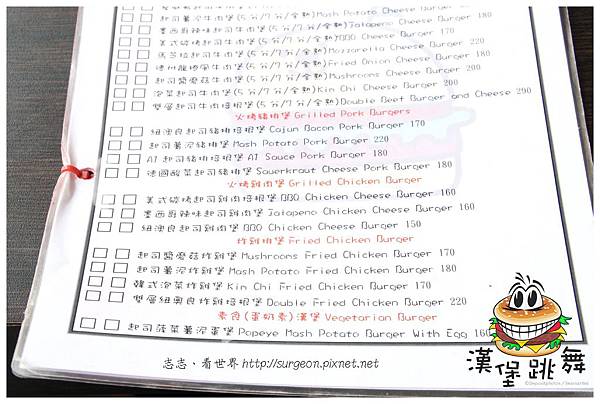 起司薯泥牛肉堡(5分/7分/全熟)Mash Potato Cheese Burger
墨西哥辣味起司牛肉堡(5分/7分/全熟)Jalapeno Cheese Burger 180
美式碳烤起司牛肉堡(5分/7分/全熟)BBQ Cheese Burger 170
馬芝拉起司牛肉堡(5分/7分/全熟)Mozzarella Cheese Burger 220
德州龍捲風牛肉堡(5分/7分/全熟)Fried Onion Cheese Burger 180
起司醬蘑菇牛肉堡(5分/7分/全熟)Mushroons Cheese Burger 200
泡菜起司牛肉堡(5分/7分/全熟)Kin Chi Cheese Burger 200
雙層起司牛肉培根堡(5分/7分/全熟)Double Beef Burger and Cheese 290
火烤豬排堡 Grilled Pork Burgers
紐澳良起司豬排培根堡 Cajun Bacon Pork Burger 170
起司薯泥豬排堡 Mash Potato Pork Burger 220
A1起司豬排培根堡 A1 Sauce Pork Burger 180
德國酸菜起司豬排堡 Sauerkraut Cheese Pork Burger 180
火烤雞肉堡 Grilled Chicken Burger
美式碳烤起司雞肉培根堡 BBQ Chicken Cheese Burger 160
墨西哥辣味起司雞肉堡 Jalapeno Chicken Cheese Burger 160
紐澳良起司雞肉堡 BBQ Chicken Cheese Burger 150
炸雞排堡 Fried Chicken Burger
起司醬蘑菇炸雞堡 Mushroons Fried Chicken Burger 170
起司薯泥炸雞堡 Mash Potato Fried Chicken Burger 180
韓式泡菜炸雞堡 Kin Chi Fried Chicken Burger 170
雙層紐奧良炸雞培根堡 Double Fried Chicken Burger 220
素食(蛋奶素)漢堡 Vegetarian Burger
起司菠菜薯泥蛋堡 Popeye Mash Potato Burger With Egg 160
志志、看世界 http://surgeon.pixnet.net
漢堡跳舞